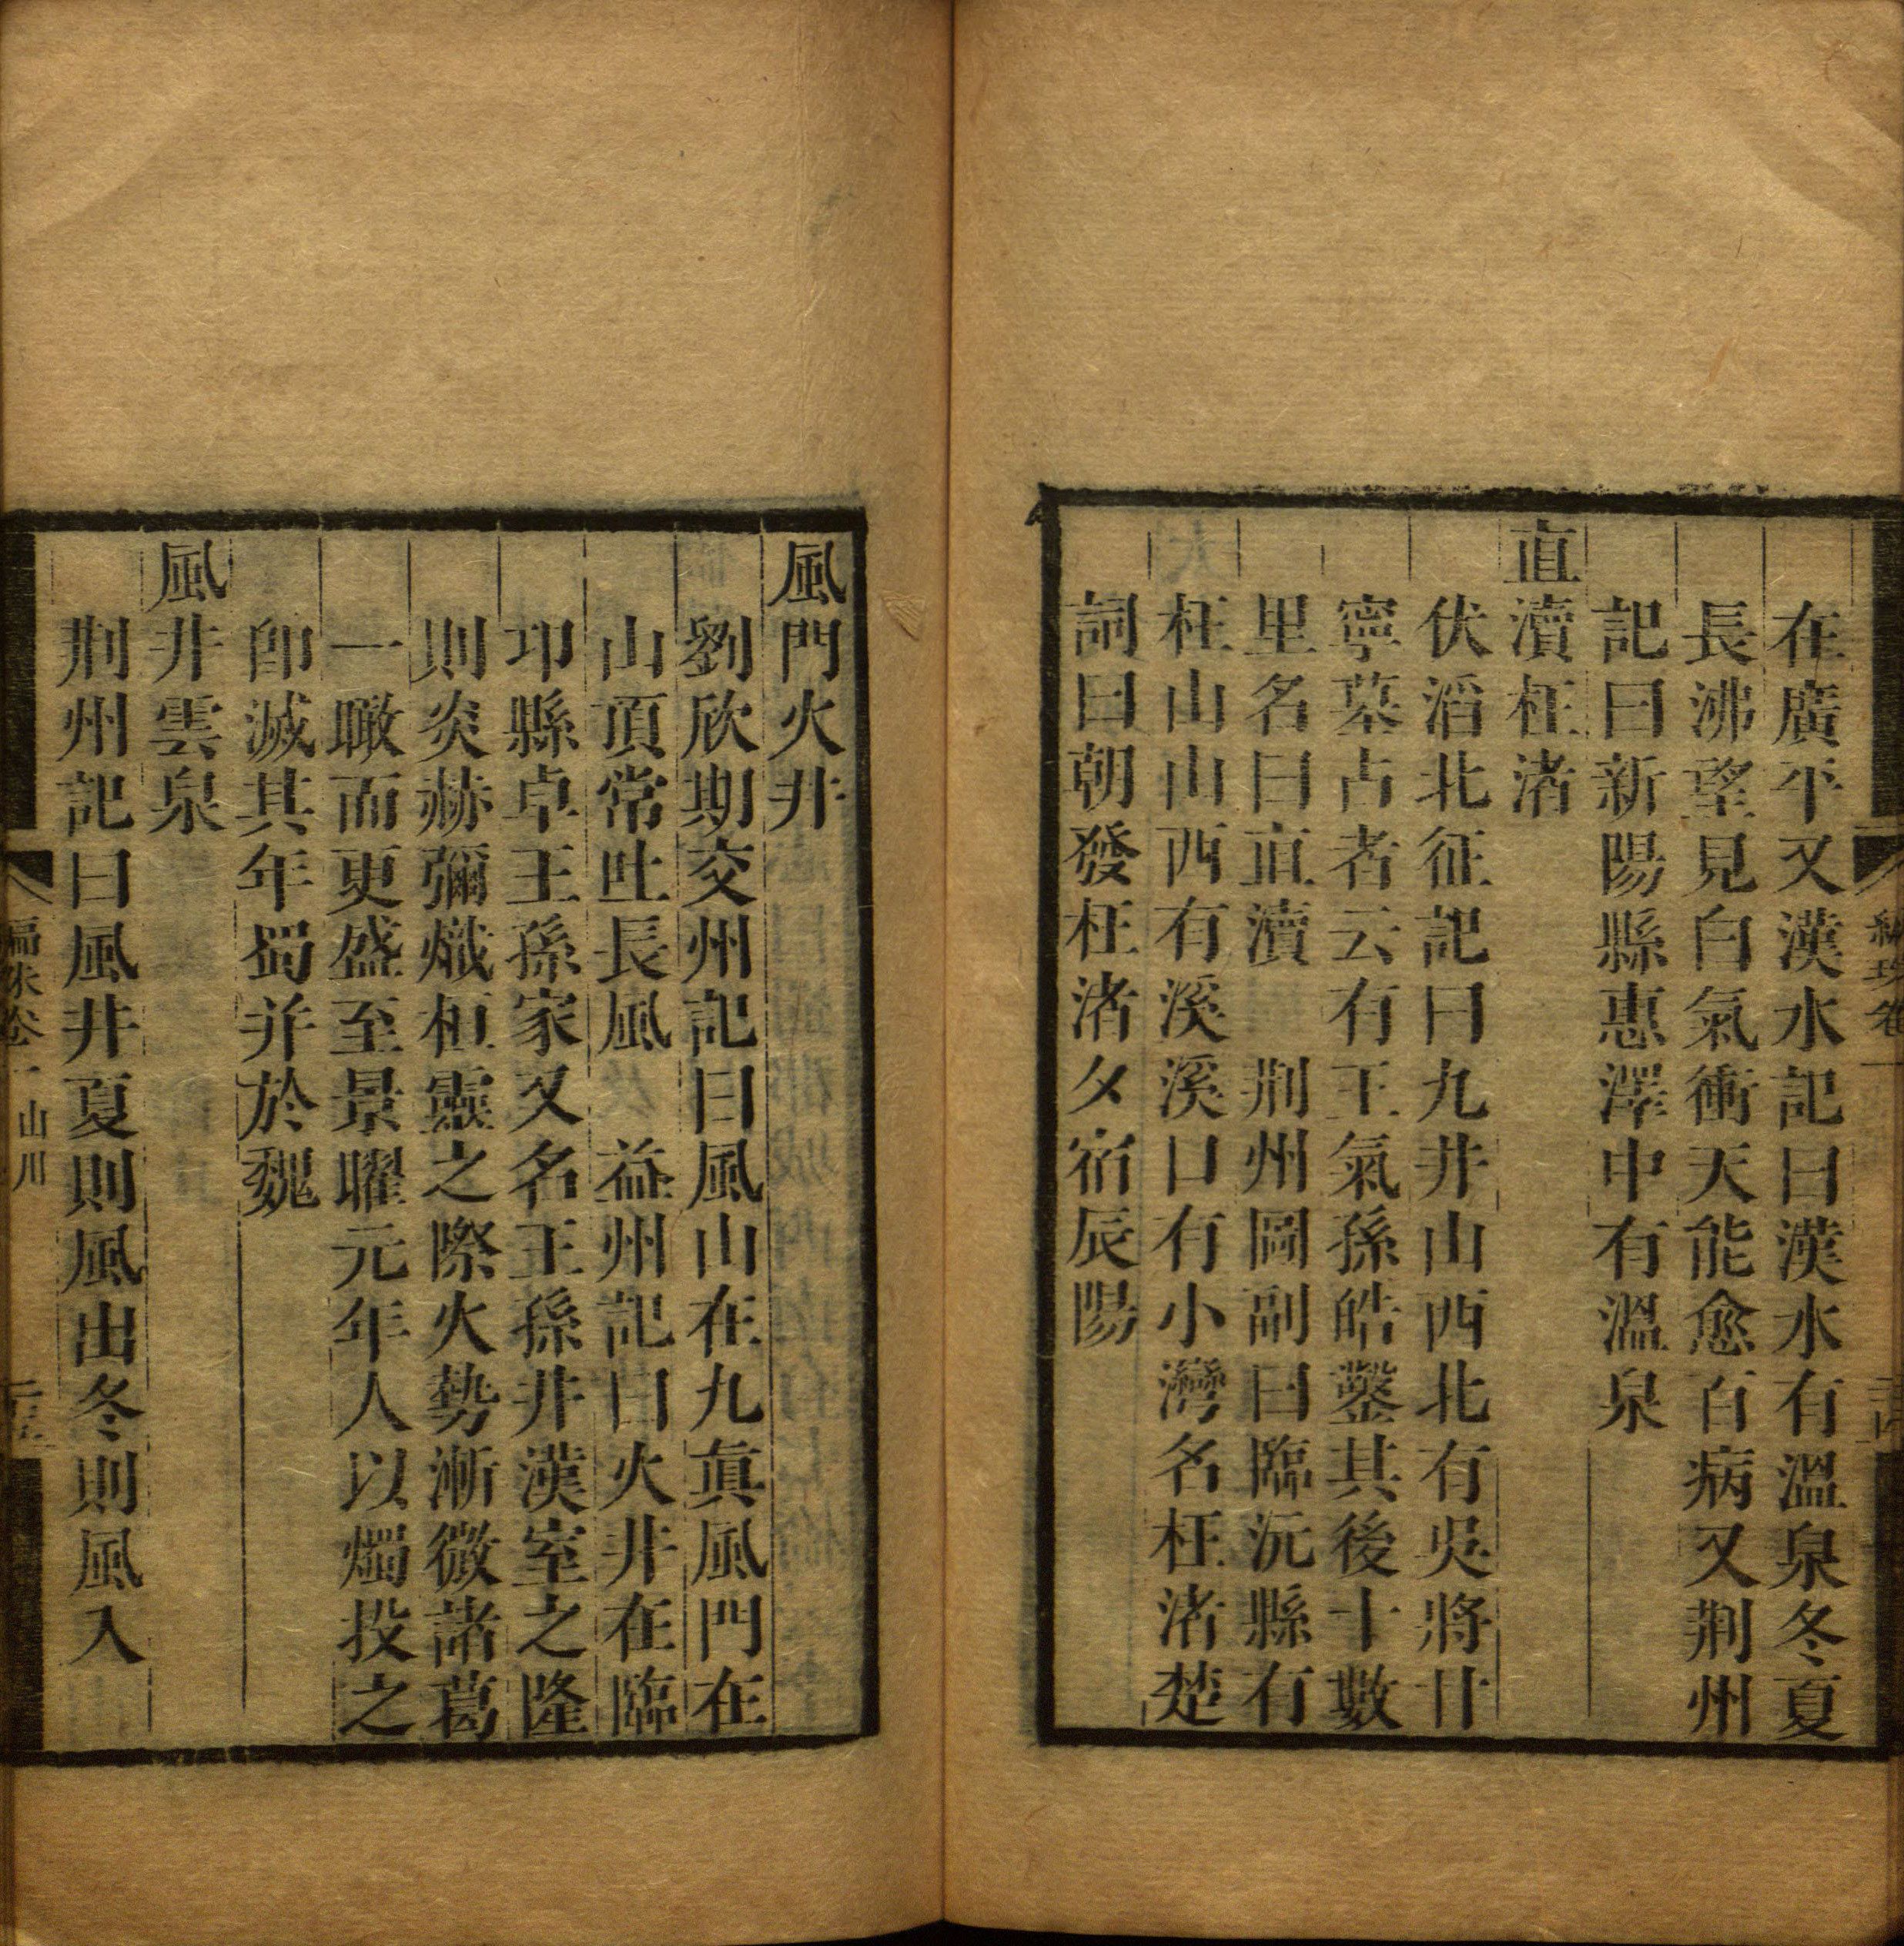 在廣平又漢水記曰漢水有溫泉冬夏
長沸望見白氣衝天能愈百病又荆州
記曰新陽縣惠澤中有溫泉
直瀆枉渚
伏滔北征記曰九井山西北有吳將甘
寧墓占者云有王氣孫皓鑿其後十數
里名曰直瀆　荆州圖副曰臨沅縣有
枉山山西有溪溪口有小灣名枉渚楚
詞曰朝發枉渚夕宿辰陽
風門火井
劉欣期交州記曰風山在九真風門在
山頂常吐長風　益州記曰火井在臨
邛縣卓王孫家又名王孫井漢室之隆
則炎赫彌熾桓靈之際火勢漸微諸葛
一瞰而更盛至景曜元年人以燭投之
卽滅其年蜀并於魏
風井雲泉
荆州記曰風井夏則風出冬則風入
編珠卷一 山川 二十五